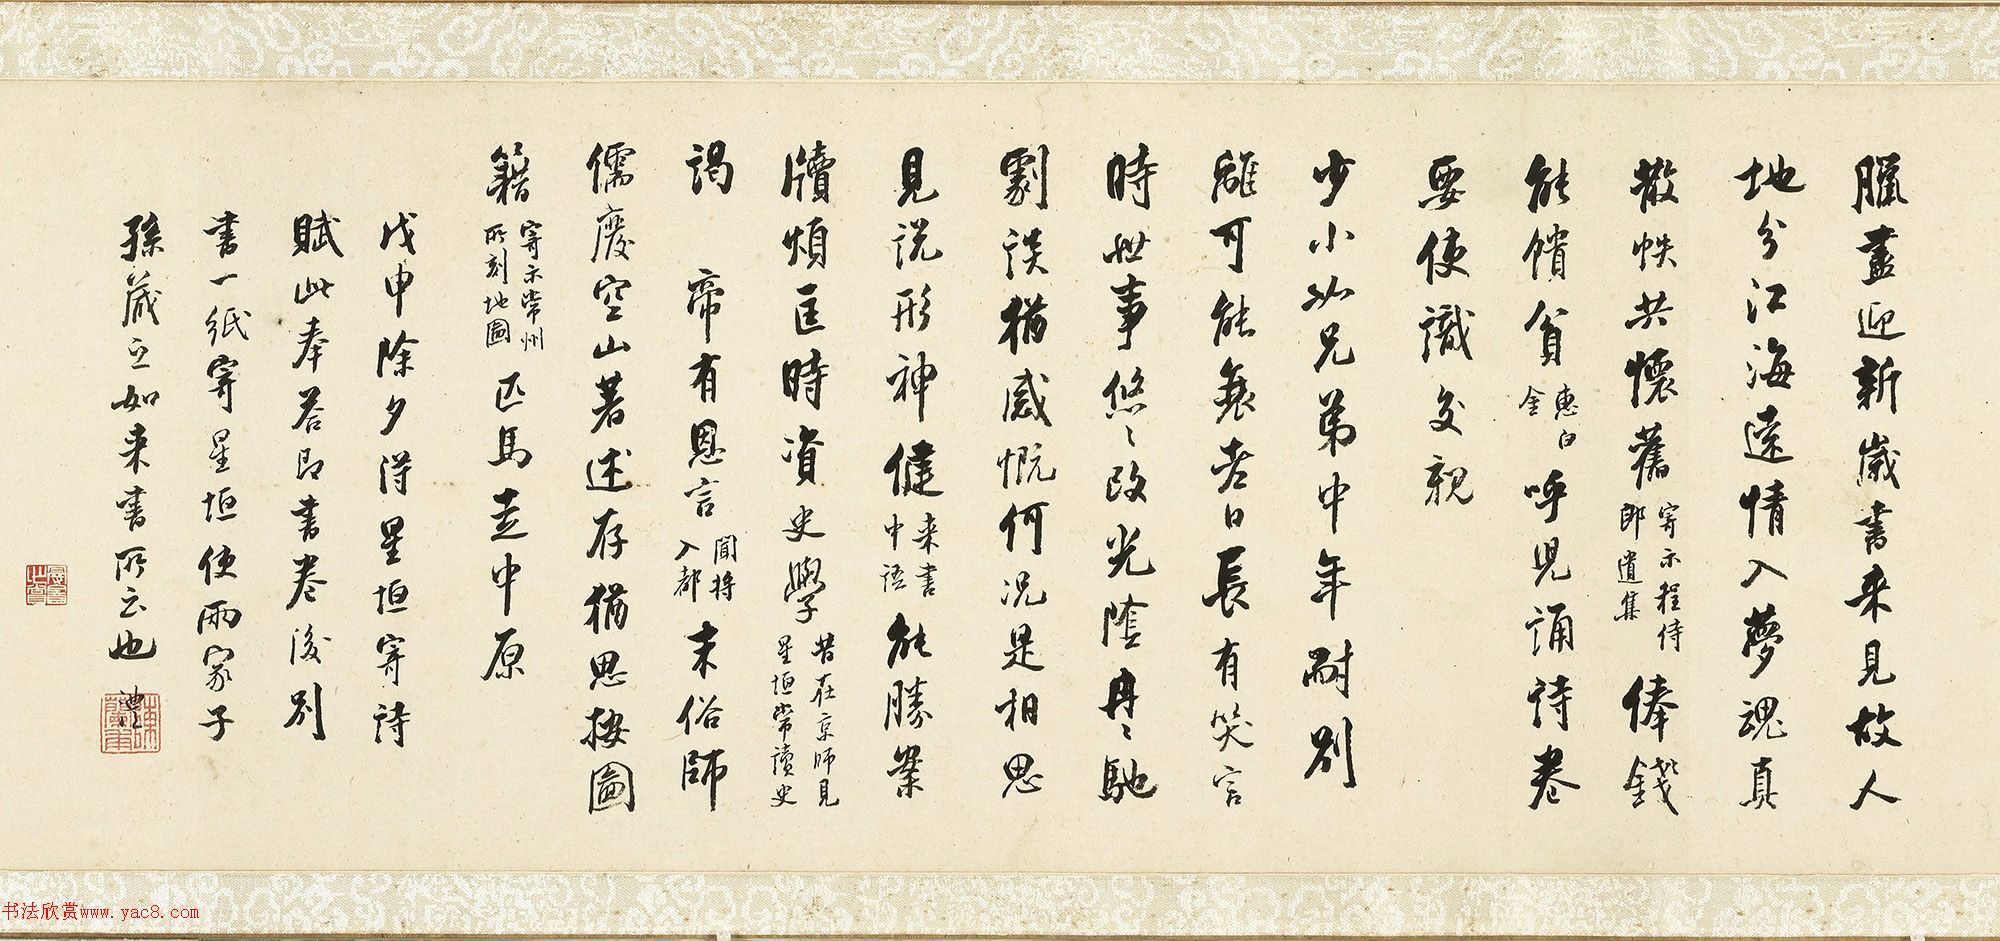 臘盡迎新歲書來見故人
地分江海遠情入夢魂真
散帙共懷舊寄示程侍郎遺集俸錢
能饋貧惠白金呼兒誦詩卷
要使識交親
少小如兄弟中年耐別
離可能衰老日長有笑言
時世事悠〻改光陰冉〻馳
劇談猶感慨何況是相思
見說形神健來書中語能勝案
牘煩匡時資史學昔在京師見星垣常讀史
謁　帝有恩言聞將入都末俗師
儒廢空山著述存猶思按圖
籍寄示常州所刻地圖匹馬走中原
戊申除夕得星垣寄詩
賦此奉答即書卷後別
書一紙寄星垣使兩家子
孫葳之如來書所云也 澧
书法欣赏www.yac8.com